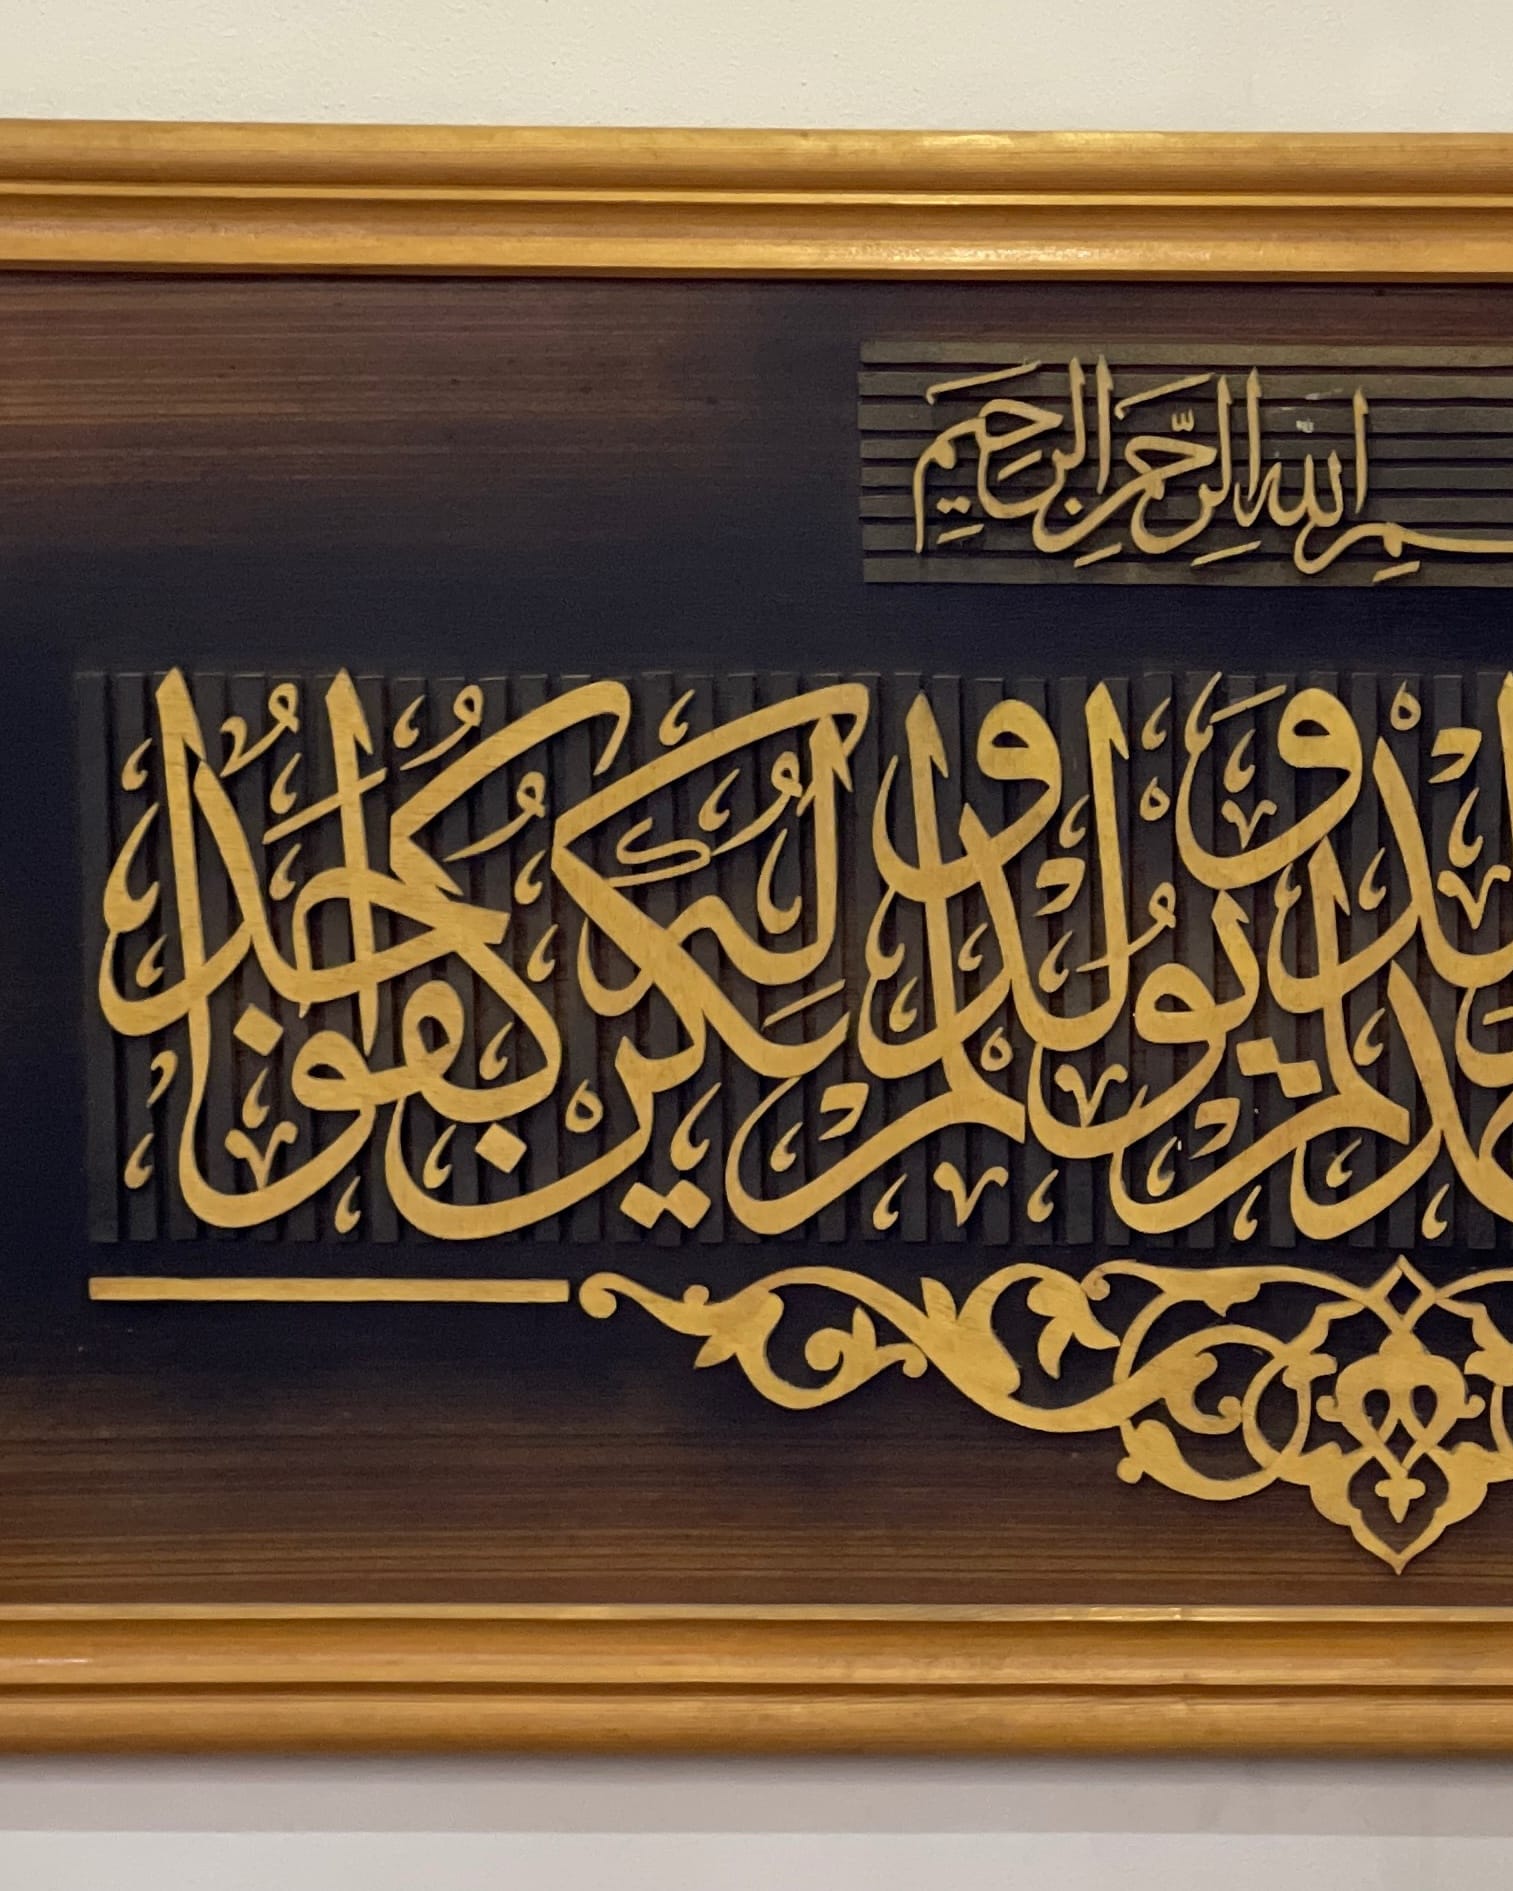 بِسْمِ اللّٰهِ الرَّحْمٰنِ الرَّحِيمِ
لَمْ يَلِدْ وَلَمْ يُولَدْ وَلَمْ يَكُنْ لَهُ كُفُوًا أَحَدٌ